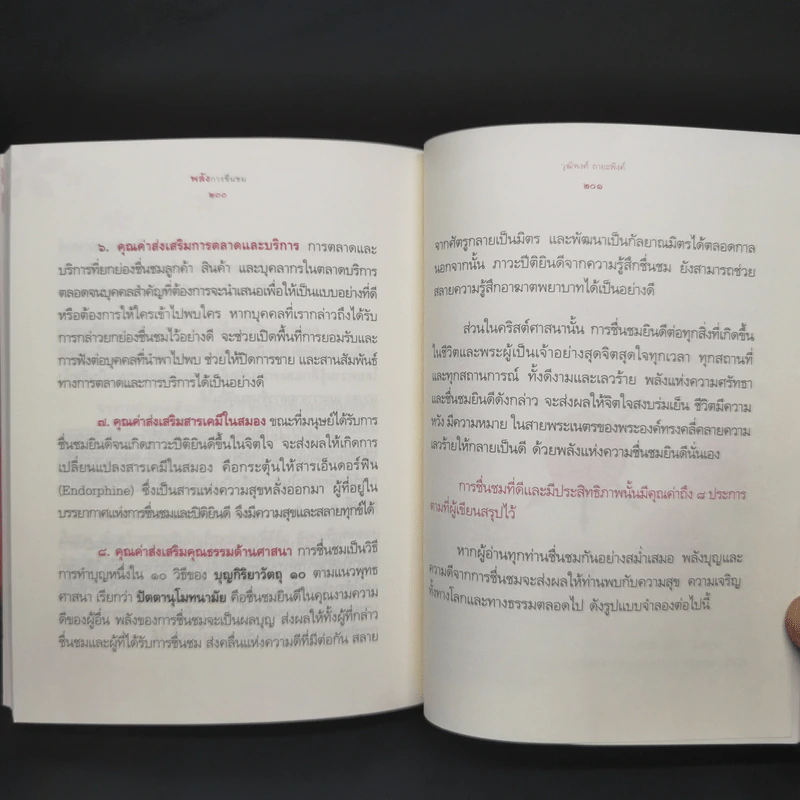 พลังการชื่นชม
๒๐๐
๖. คุณค่าส่งเสริมการตลาดและบริการ การตลาดและ
บริการที่ยกย่องชื่นชมลูกค้า สินค้า และบุคลากรในตลาดบริการ
ตลอดจนบุคคลสำคัญที่ต้องการจะนำเสนอเพื่อให้เป็นแบบอย่างที่ดี
หรือต้องการให้ใครเข้าไปพบใคร หากบุคคลที่เรากล่าวถึงได้รับ
การกล่าวยกย่องชื่นชมไว้อย่างดี จะช่วยเปิดพื้นที่การยอมรับและ
การฟังต่อบุคคลที่นำพาไปพบ ช่วยให้ปิดการขาย และสานสัมพันธ์
ทางการตลาดและการบริการได้เป็นอย่างดี
๗. คุณค่าส่งเสริมสารเคมีในสมอง ขณะที่มนุษย์ได้รับการ
ชื่นชมยินดีจนเกิดภาวะปีติยินดีขึ้นในจิตใจ จะส่งผลให้เกิดการ
เปลี่ยนแปลงสารเคมีในสมอง คือกระตุ้นให้สารเอ็นดอร์ฟิน
(Endorphine) ซึ่งเป็นสารแห่งความสุขหลั่งออกมา ผู้ที่อยู่ใน
บรรยากาศแห่งการชื่นชมและปิติยินดี จึงมีความสุขและสลายทุกข์ได้
๘. คุณค่าส่งเสริมคุณธรรมด้านศาสนา การชื่นชมเป็นวิธี
การทำบุญหนึ่งใน ๑๐ วิธีของ บุญกิริยาวัตถุ ๑๐ ตามแนวพุทธ
ศาสนา เรียกว่า ปัตตานุโมทนามัย คือชื่นชมยินดีในคุณงามความ
ดีของผู้อื่น พลังของการชื่นชมจะเป็นผลบุญ ส่งผลให้ทั้งผู้ที่กล่าว
ชื่นชมและผู้ที่ได้รับการชื่นชม ส่งคลื่นแห่งความดีที่มีต่อกัน สลาย
วุฒิพงศ์ ถายะพิงค์
๒๐๑
จากศัตรูกลายเป็นมิตร และพัฒนาเป็นกัลยาณมิตรได้ตลอดกาล
นอกจากนั้น ภาวะปีติยินดีจากความรู้สึกชื่นชม ยังสามารถช่วย
สลายความรู้สึกอาฆาตพยาบาทได้เป็นอย่างดี
ส่วนในคริสต์ศาสนานั้น การชื่นชมยินดีต่อทุกสิ่งที่เกิดขึ้น
ในชีวิตและพระผู้เป็นเจ้าอย่างสุดจิตสุดใจทุกเวลา ทุกสถานที่
และทุกสถานการณ์ ทั้งดีงามและเลวร้าย พลังแห่งความศรัทธา
และชื่นชมยินดีดังกล่าว จะส่งผลให้จิตใจสงบร่มเย็น ชีวิตมีความ
หวัง มีความหมาย ในสายพระเนตรของพระองค์ทรงคลี่คลายความ
เลวร้ายให้กลายเป็นดี ด้วยพลังแห่งความชื่นชมยินดีนั่นเอง
การชื่นชมที่ดีและมีประสิทธิภาพนั้นมีคุณค่าถึง ๘ ประการ
ตามที่ผู้เขียนสรุปไว้
หากผู้อ่านทุกท่านชื่นชมกันอย่างสม่ำเสมอ พลังบุญและ
ความดีจากการชื่นชมจะส่งผลให้ท่านพบกับความสุข ความเจริญ
ทั้งทางโลกและทางธรรมตลอดไป ดังรูปแบบจำลองต่อไปนี้